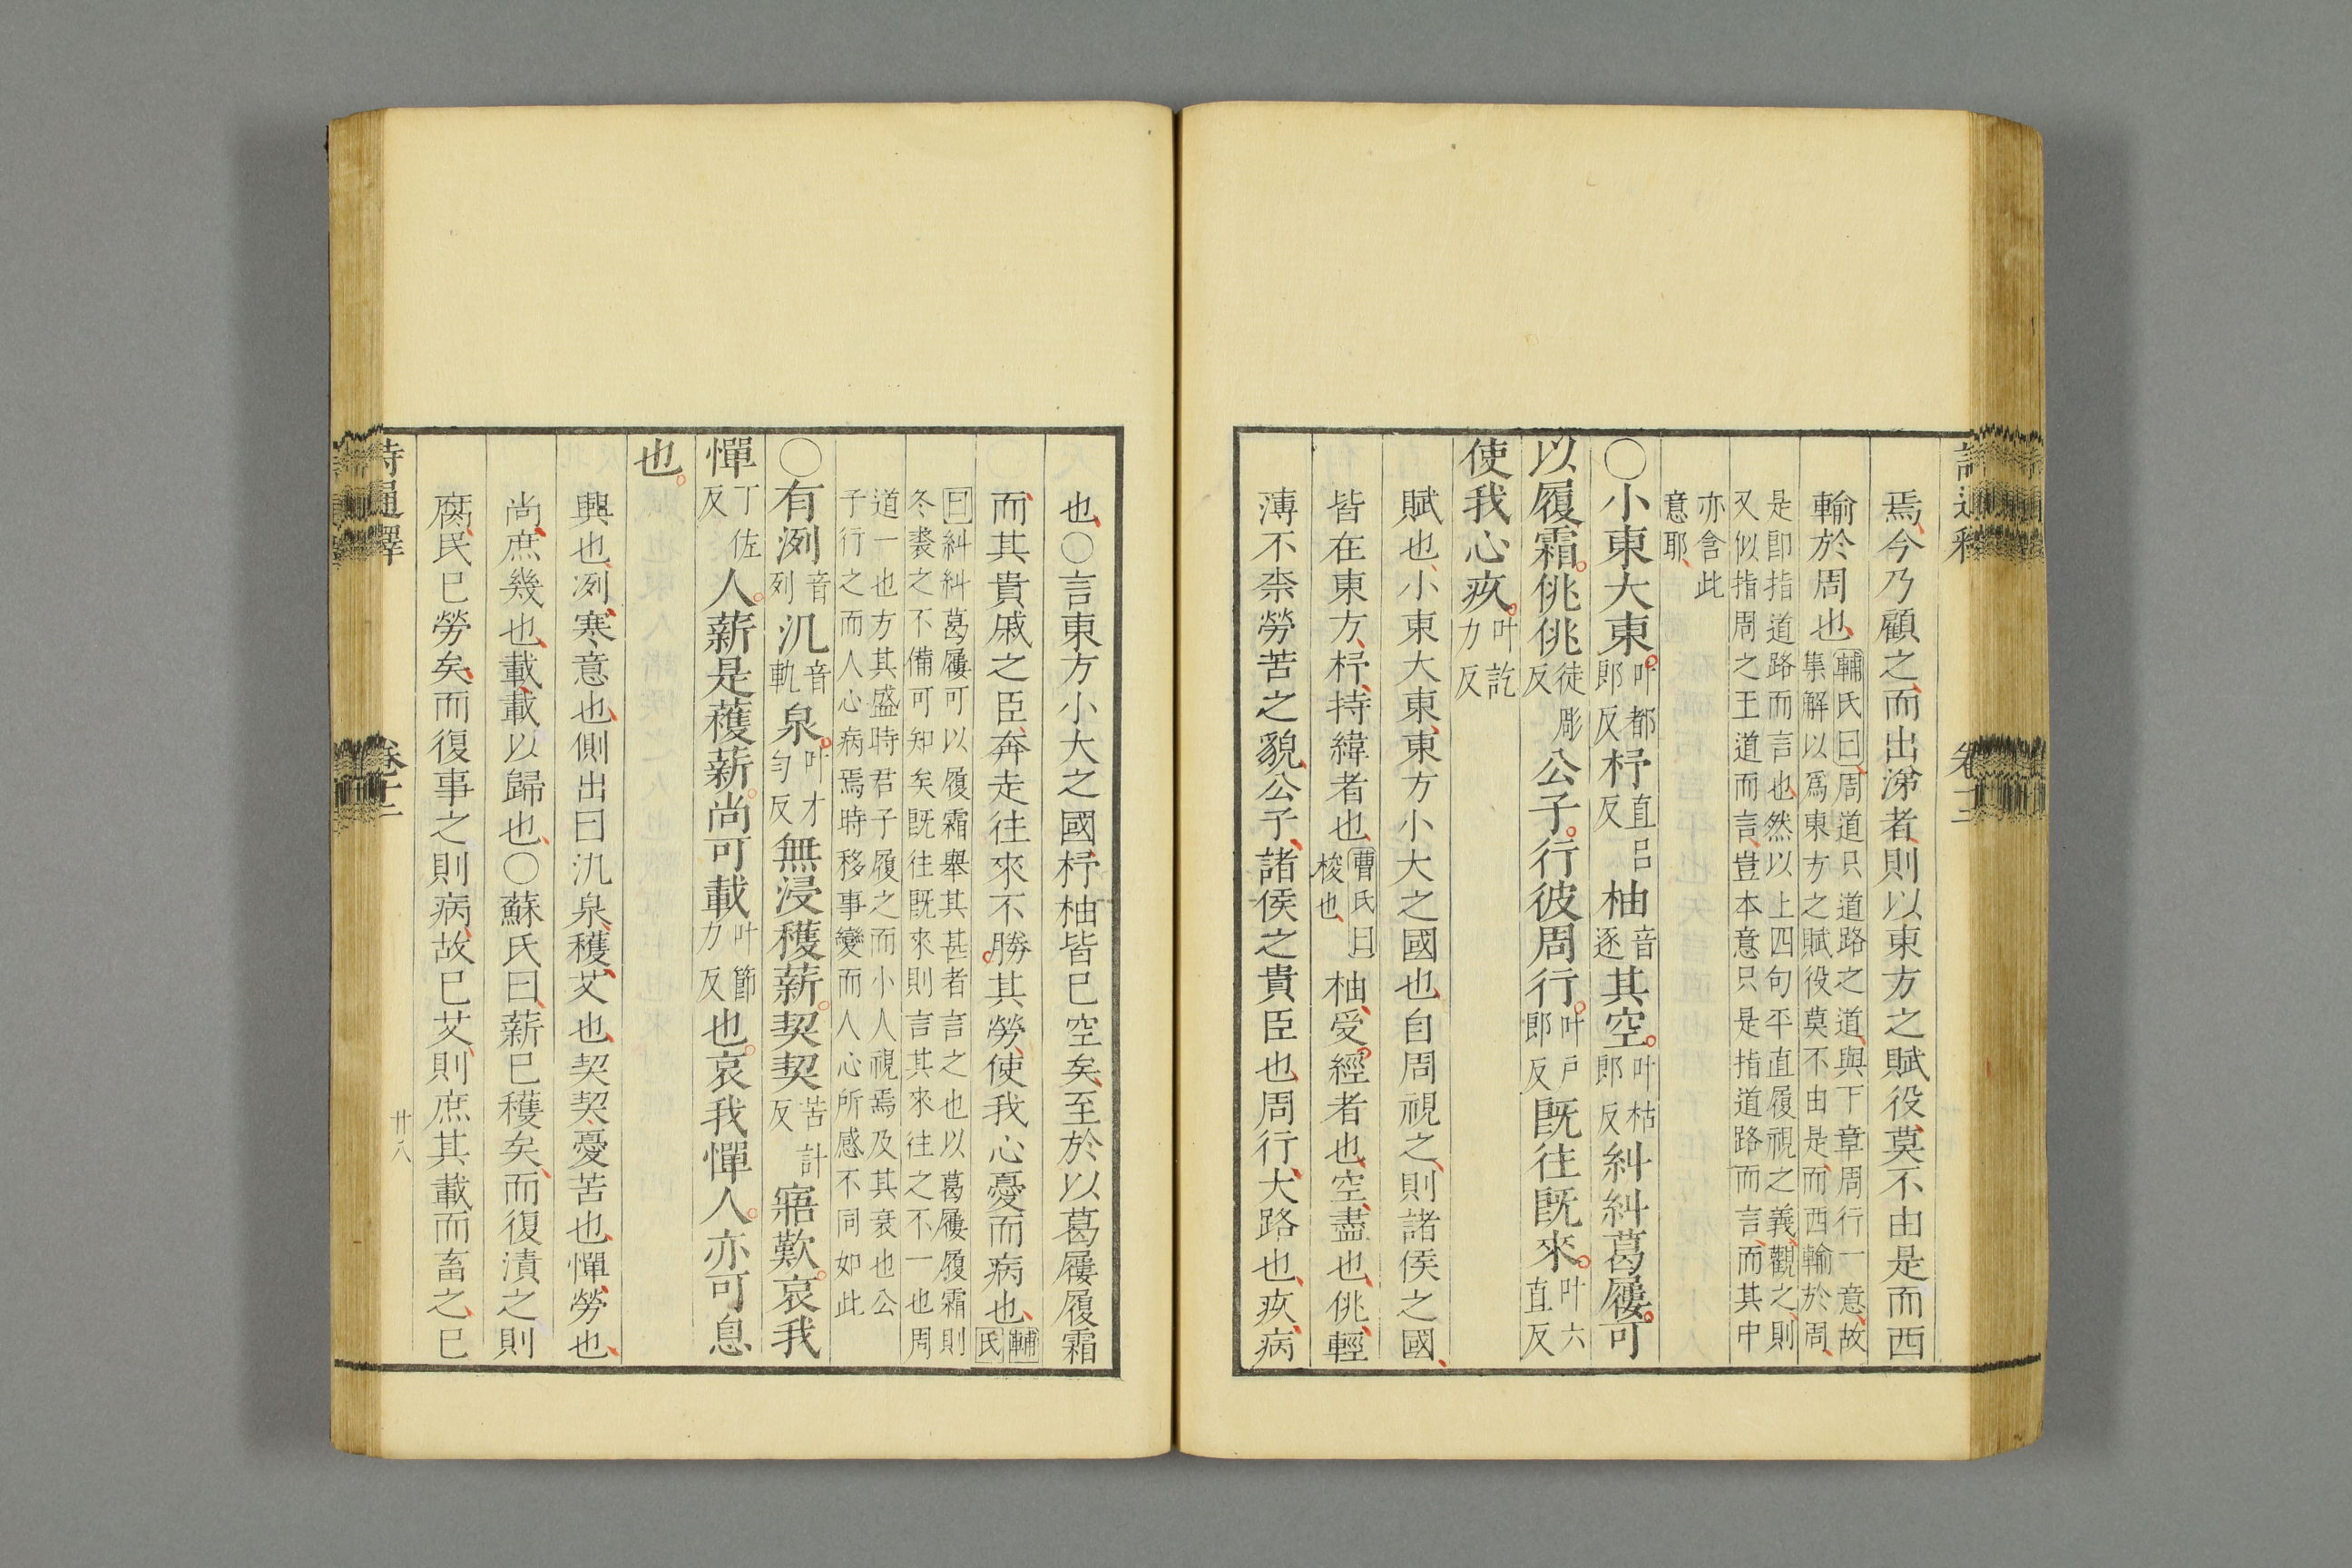 焉今乃顧之而出涕者則以東方之賦役莫不由是而西
輸於周也輔氏曰周道只道路之道與下章周行一意故
集解以爲東方之賦役莫不由是而西輸於周
是卽指道路而言也然以上四句平直履視之義觀之則
又似指周之王道而言豈本意只是指道路而言而其中
亦含此
意耶
○小東大東叶都郎反杼直呂反柚音逐其空叶枯郎反糾糾葛屨可
以履霜佻佻徒彫反公子行彼周行叶戶郎反旣往旣來叶六直反
使我心疚叶訖力反
賦也小東大東東方小大之國也自周視之則諸侯之國
皆在東方杼持緯者也曹氏曰梭也柚受經者也空盡也佻輕
薄不柰勞苦之貌公子諸侯之貴臣也周行大路也疚病
也○言東方小大之國杼柚皆已空矣至於以葛屨履霜
而其貴戚之臣奔走往來不勝其勞使我心憂而病也輔氏
曰糾糾葛屨可以履霜舉其甚者言之也以葛屨履霜則
冬裘之不備可知矣旣往旣來則言其來往之不一也周
道一也方其盛時君子履之而小人視焉及其衰也公
子行之而人心病焉時移事變而人心所感不同如此
○有洌音列氿音軌泉叶才勻反無浸穫薪契契苦計反寤歎哀我
憚丁佐反人薪是穫薪尚可載叶節力反也哀我憚人亦可息
也
興也洌寒意也側出曰氿泉穫艾也契契憂苦也憚勞也
尚庶幾也載載以歸也○蘇氏曰薪已穫矣而復漬之則
腐民已勞矣而復事之則病故已艾則庶其載而畜之已
詩通釋
卷十二
廿八